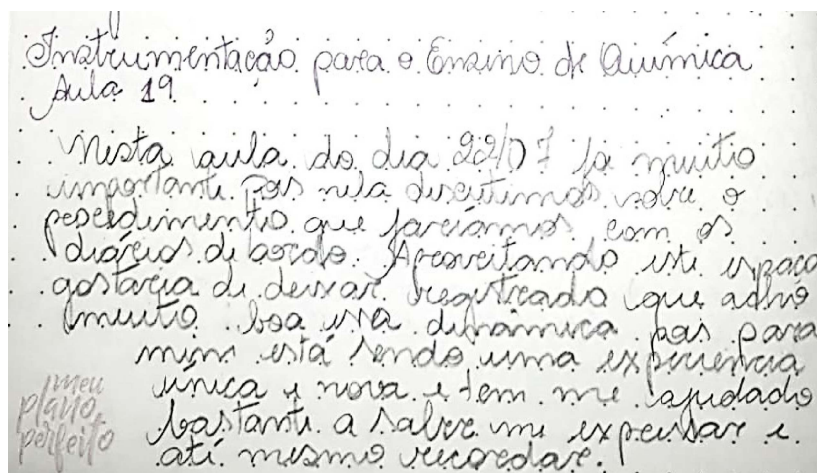 Instrumentação para o Ensino de Química
Aula 19
Nesta aula do dia 22/07 foi muito
importante pois nela discutimos sobre o
procedimento que faríamos com os
diários de bordo. Aproveitando este espaço
gostaria de deixar registrado que acho
muito boa essa dinâmica pois para
mim está sendo uma experiência
única e nova e tem me ajudado
bastante a saber me expressar e
até mesmo recordar.
meu
plano
perfeito